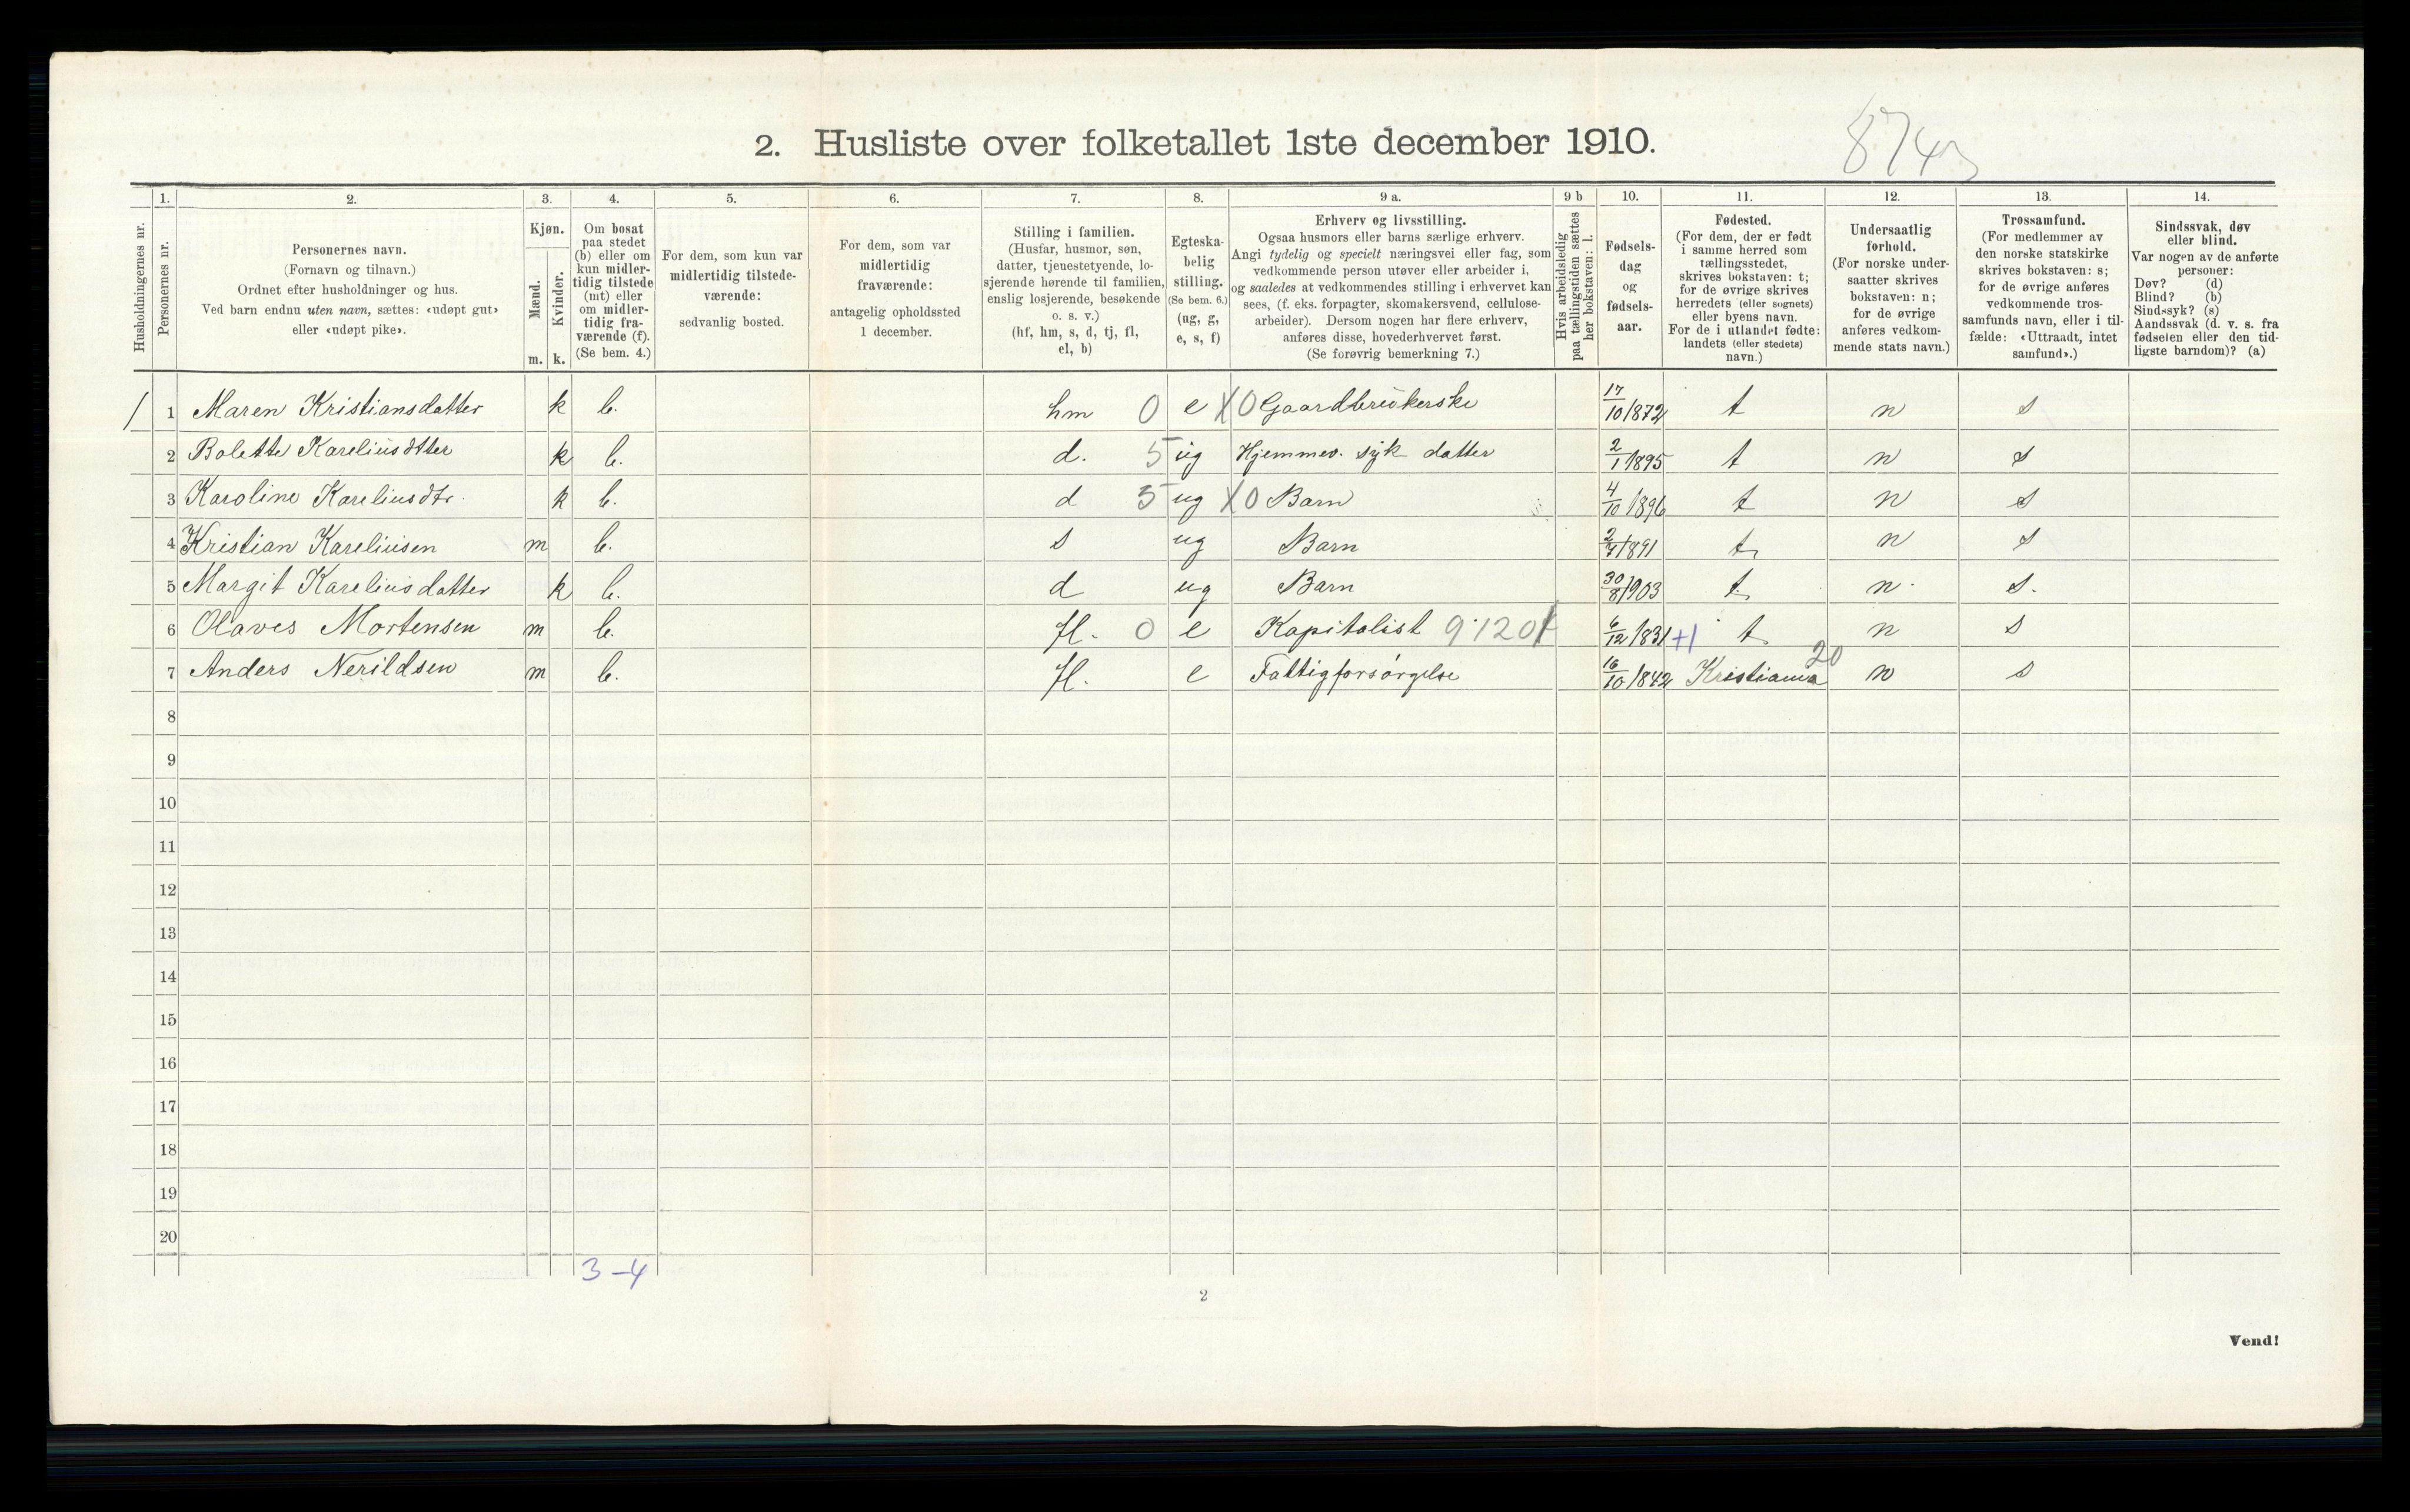 2. Husliste over folketallet 1ste december 1910.
8743
1. 2. 3. 4. 5. 6. 7. 8. 9 a. 9 b 10. 11. 12. 13. 14.
Husholdningernes nr.
Personernes nr.
Personernes navn.
(Fornavn og tilnavn.)
Ordnet efter husholdninger og hus.
Ved barn endnu uten navn, sættes: «udøpt gut»
eller «udøpt pike».
Kjøn.
Mænd.
Kvinder.
m. k.
Om bosat
paa stedet
(b) eller om
kun midler-
tidig tilstede
(mt) eller
om midler-
tidig fra-
værende (f).
(Se bem. 4.)
For dem, som kun var
midlertidig tilstede-
værende:
sedvanlig bosted.
For dem, som var
midlertidig
fraværende:
antagelig opholdssted
1 december.
Stilling i familien.
(Husfar, husmor, søn,
datter, tjenestetyende, lo-
sjerende hørende til familien,
enslig losjerende, besøkende
o. s. v.)
(hf, hm, s, d, tj, fl,
el, b)
Egteska-
belig
stilling.
(Se bem. 6.)
(ug, g,
e, s, f)
Erhverv og livsstilling.
Ogsaa husmors eller barns særlige erhverv.
Angi tydelig og specielt næringsvei eller fag, som
vedkommende person utøver eller arbeider i,
og saaledes at vedkommendes stilling i erhvervet kan
sees, (f. eks. forpagter, skomakersvend, cellulose-
arbeider). Dersom nogen har flere erhverv,
anføres disse, hovederhvervet først.
(Se forøvrig bemerkning 7.)
Hvis arbeidsledig
paa tællingstiden sættes
her bokstaven: l.
Fødsels-
dag
og
fødsels-
aar.
Fødested.
(For dem, der er født
i samme herred som
tællingsstedet,
skrives bokstaven: t;
for de øvrige skrives
herredets (eller sognets)
eller byens navn.
For de i utlandet fødte:
landets (eller stedets)
navn.)
Undersaatlig
forhold.
(For norske under-
saatter skrives
bokstaven: n;
for de øvrige
anføres vedkom-
mende stats navn.)
Trossamfund.
(For medlemmer av
den norske statskirke
skrives bokstaven: s;
for de øvrige anføres
vedkommende tros-
samfunds navn, eller i til-
fælde: «Uttraadt, intet
samfund».)
Sindssvak, døv
eller blind.
Var nogen av de anførte
personer:
Døv? (d)
Blind? (b)
Sindssyk? (s)
Aandssvak (d. v. s. fra
fødselen eller den tid-
ligste barndom)? (a)
1 1 Maren Kristiansdatter k b. hm 0 e X0 Gaardbrukerske 17/10 1872 t n s
2 Bolette Kareliusdtter k b. d. 5 ug Hjemmev. syk datter 2/1 1895 t n s
3 Karoline Kareliusdtr. k b. d 5 ug X0 Barn 4/10 1896 t n s
4 Kristian Kareliusen m b. s ug Barn t n s
5 Margit Kareliusdatter k b. d ug Barn 30/8 1903 t. n. s.
6 Olaves Mortensen m b. fl. 0 e Kapitalist 9.120 6/12 1831 +1 t n s
7 Anders Nerildsen m b. fl. e Fattigforsørgelse 16/10 1842 Kristiania 20 n s
8
9
10
11
12
13
14
15
16
17
18
19
20
3-4
2
Vend!